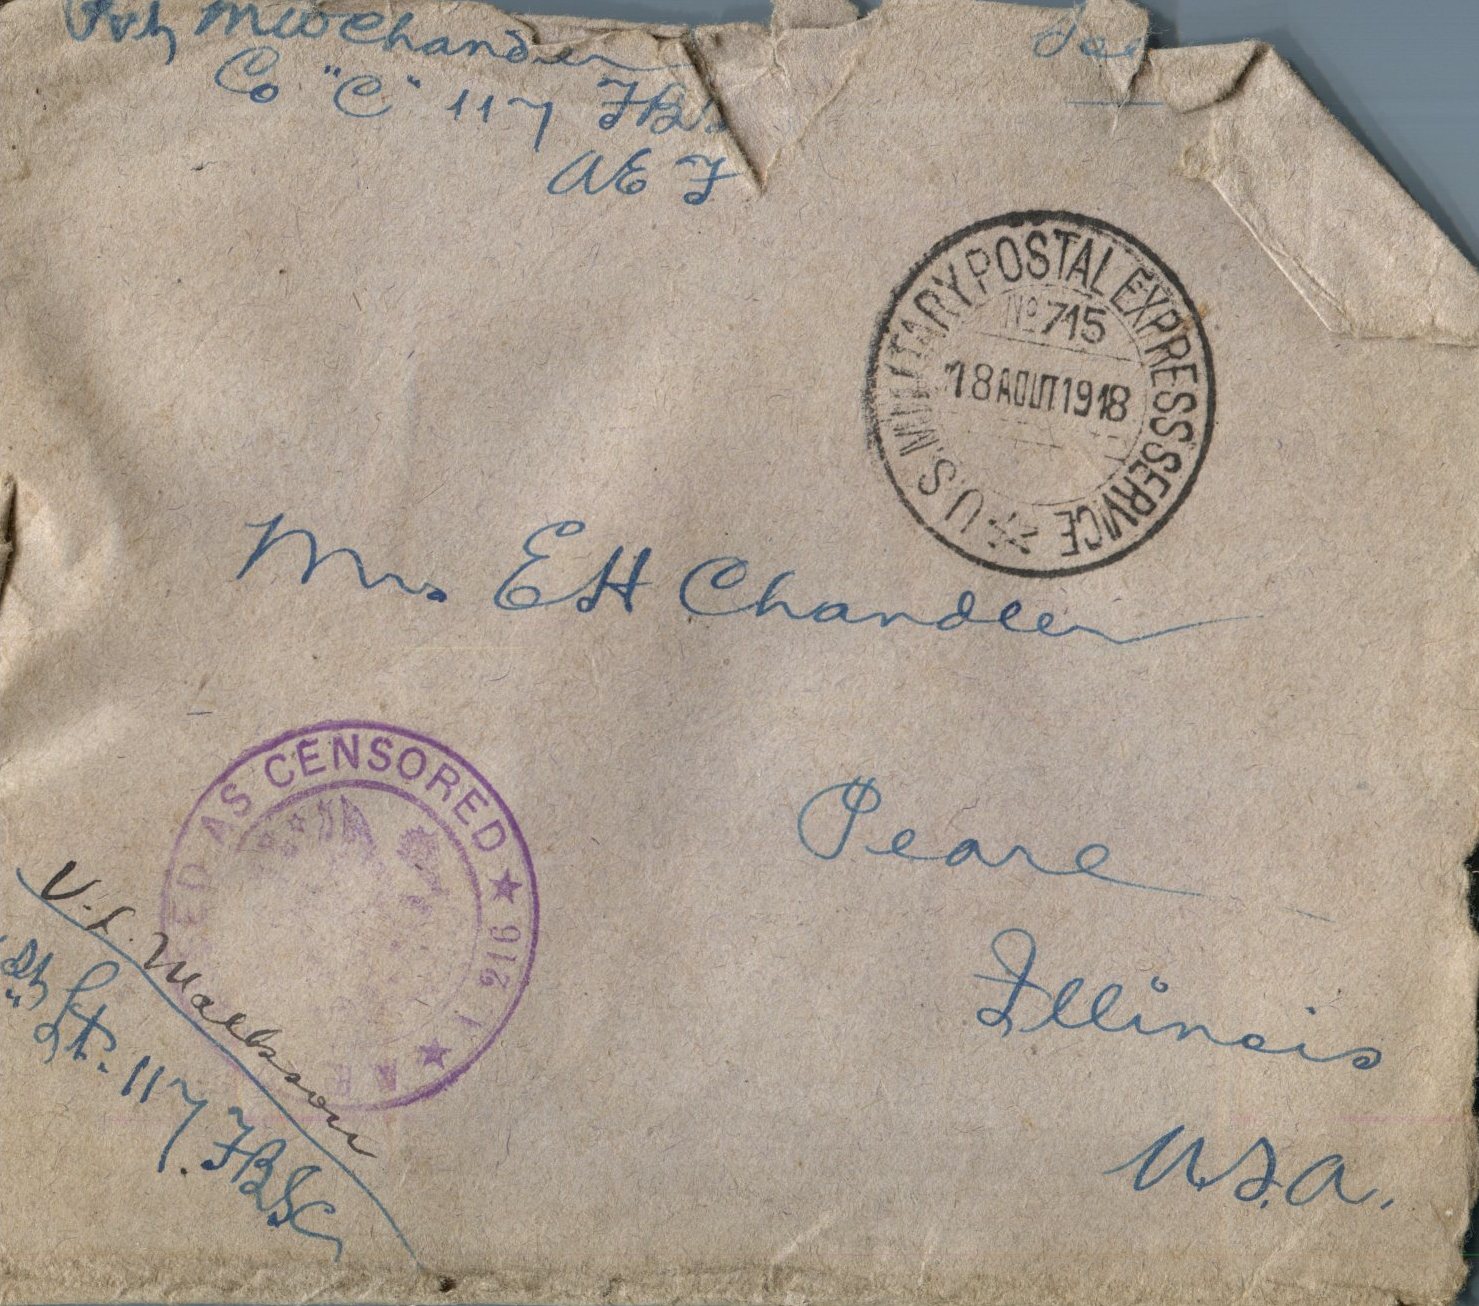 Pvt MW Chandler
Co "C" 117 FBS
A E F
U.S. MILITARY POSTAL EXPRESS SERVICE
No 715
18 AOUT 1918
Mrs. EH Chandler
Pearl
Illinois
U.S.A.
AS CENSORED ★ 912 ★ A.E.F.
1st Lt. 117 FBSC